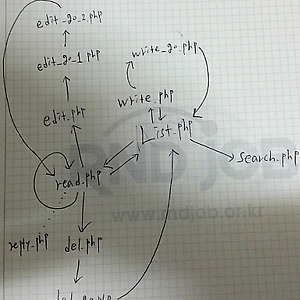 edit_go_2.php
edit_go_1.php
write_go.php
write.php
edit.php
List.php
Search.php
read.php
RND job
www.rndjob.or.kr
reply.php
del.php